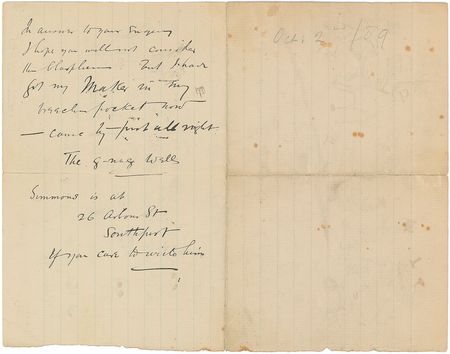 In answer to your Enquiry
I hope you will not consider
this Blasphemy but I have
got my Maker in my
breech pocket now
— came by post all right
The Wells
Simmons is at
26 St
Southport
If you care to write him
Oct: 2nd /89